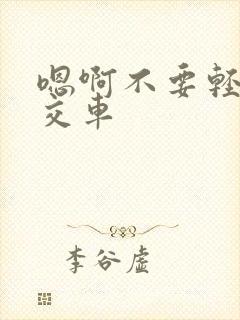 嗯啊不要轻
交车
李谷虚